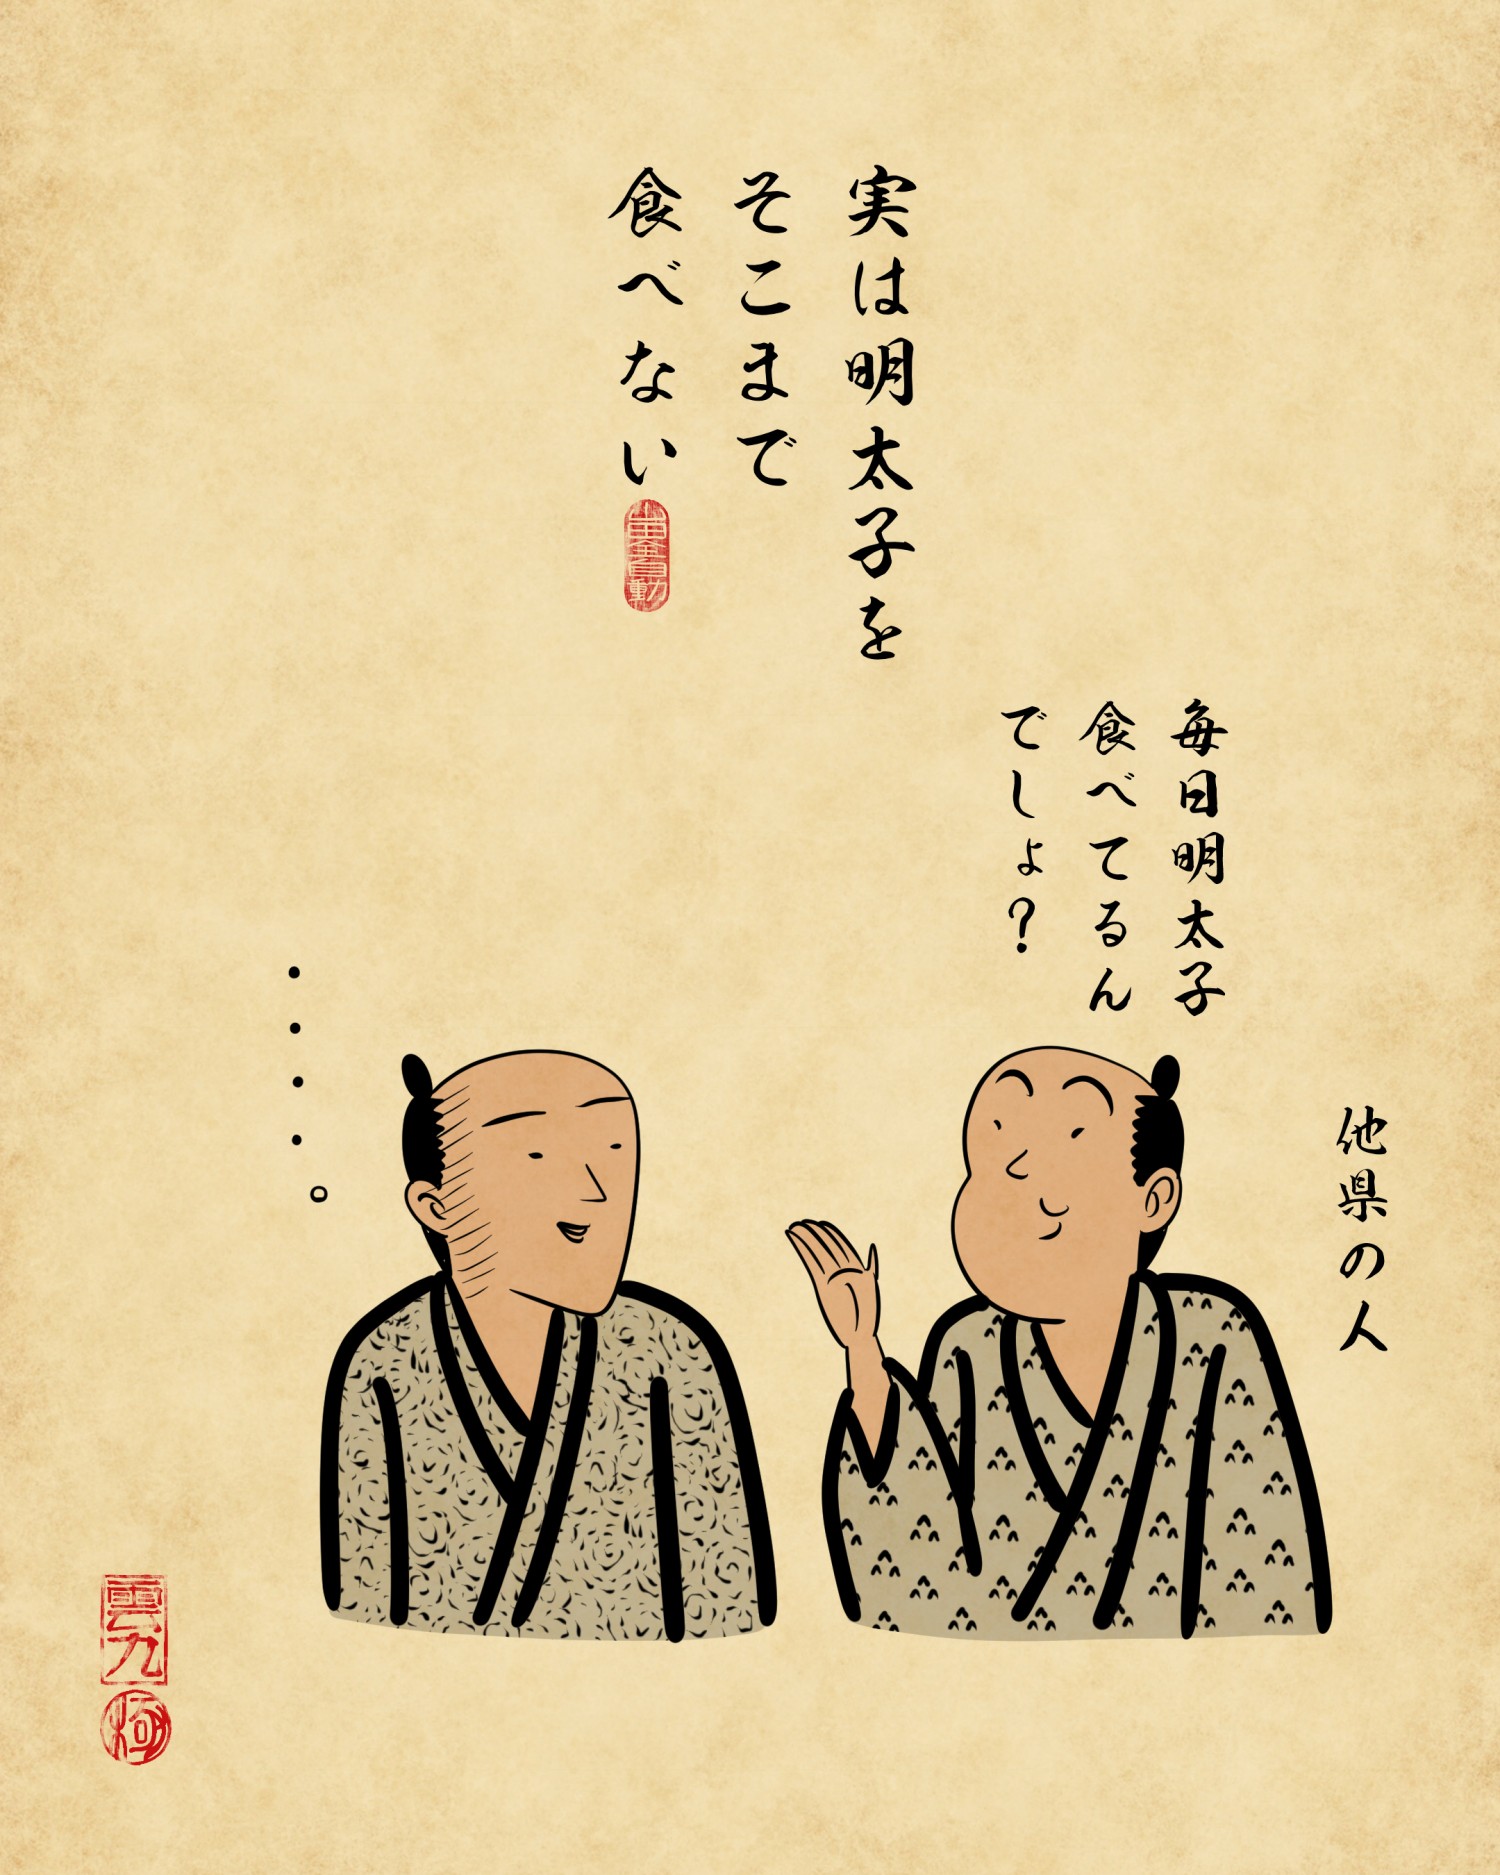 実は明太子を
そこまで
食べない
毎日明太子
食べてるん
でしょ？
他県の人
・・・・。
雲九
極